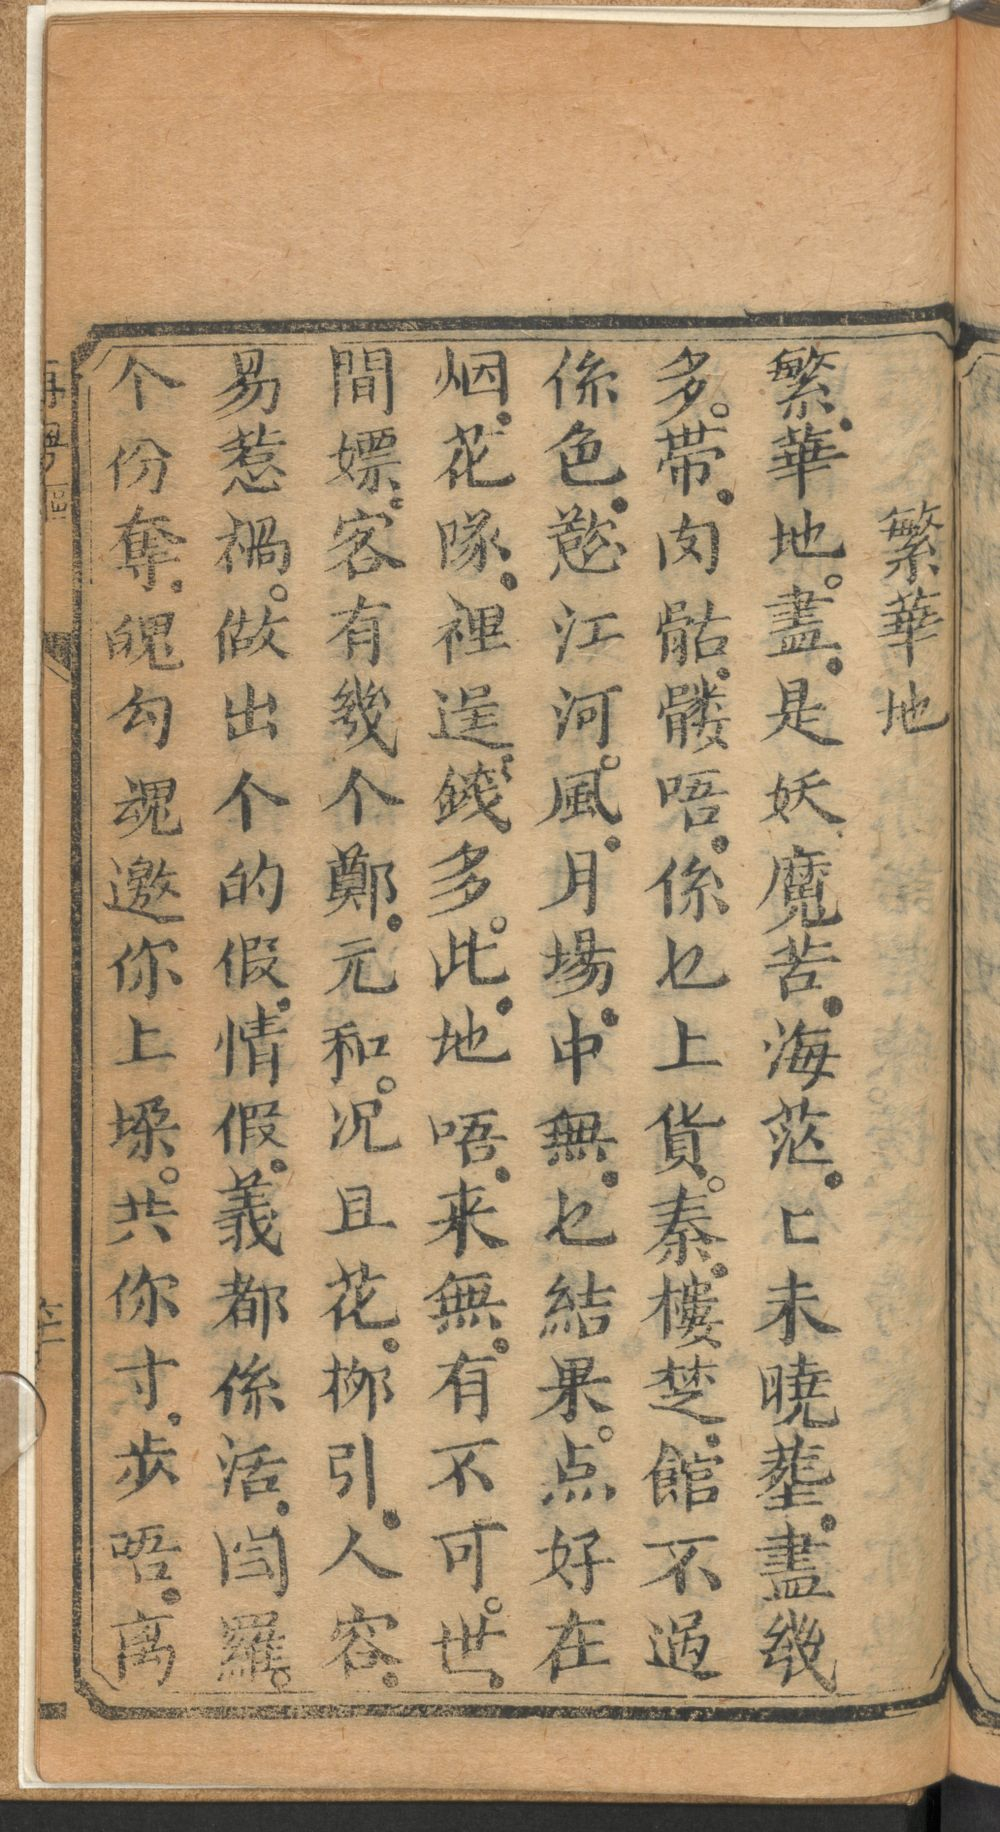 繁華地
繁華地。盡是妖魔苦海茫匕未曉塟盡幾
多。帶肉骷髏唔係乜上貨。秦樓楚館不過
係色慾江河。風月場中無乜結果。点好在
烟花隊裡逞錢多。此地唔来無有不可。世
間嫖客有幾个鄭元和。况且花柳引人容
易惹禍。做出个的假情假義都係活閆羅。
个份奪魄勾魂邀你上垜。共你寸步唔离